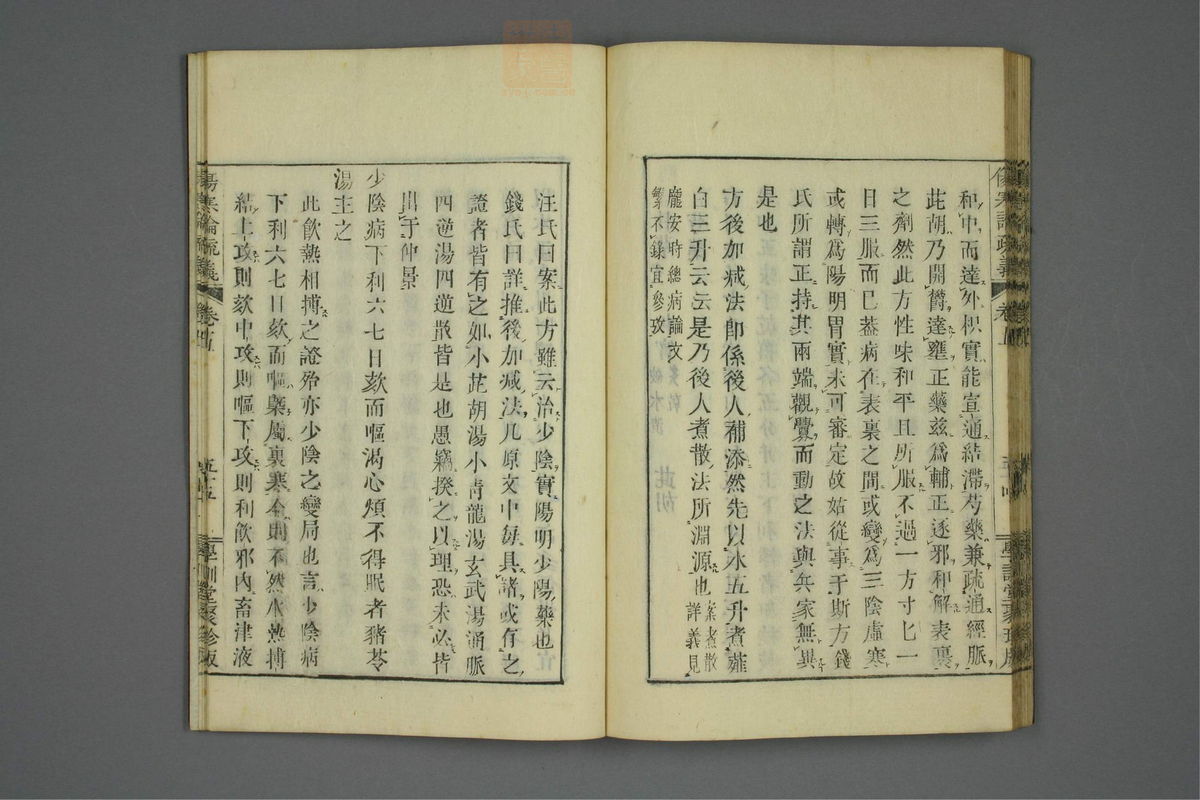 和中而達外枳實能宣通結滯芍藥兼疏通經脈
茈胡乃開欝達壅正藥茲爲輔正逐邪和解表裏
之劑然此方性味和平且所服不過一方寸匕一
日三服而已葢病在表裏之間或變爲三陰虛寒
或轉爲陽明胃實未可審定故姑從事于斯方錢
氏所謂正持其兩端觀釁而動之法與兵家無異
是也
方後加減法卽係後人補添然先以水五升煮薤
白三升云云是乃後人煮散法所淵源也案煮散詳義見
龐安時總病論文繁不錄宜參攷
汪氏曰案此方雖云治少陰實陽明少陽藥也
錢氏曰詳推後加減法凡原文中每具諸或有之
證者皆有之如小茈胡湯小靑龍湯玄武湯通脈
四逆湯四逆散皆是也愚竊揆之以理恐未必皆
出于仲景
少陰病下利六七日欬而嘔渴心煩不得眠者豬苓
湯主之
此飮熱相搏之證殆亦少陰之變局也言少陰病
下利六七日欬而嘔槩屬裏寒今則不然水熱搏
結上攻則欬中攻則嘔下攻則利飮邪內畜津液
傷寒論疏義
卷五
五十五
學訓堂聚珍版